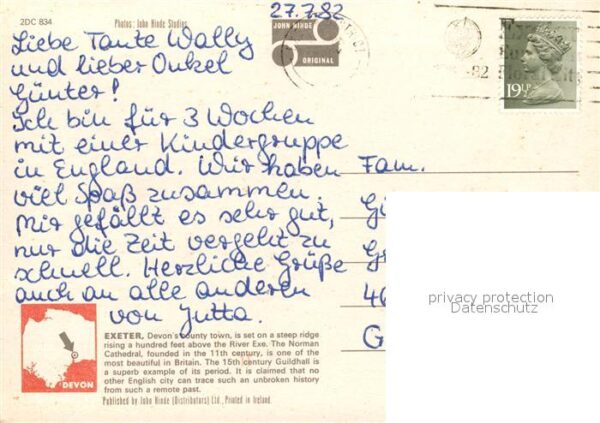 27.7.82
2DC 834
Photos: John Hinde Studios
JOHN HINDE
ORIGINAL
19½P
-82
Liebe Tante Wally
und lieber Onkel
Günter!
Ich bin für 3 Wochen
mit einer Kindergruppe
in England. Wir haben
viel Spaß zusammen.
Mir gefällt es sehr gut,
nur die Zeit vergeht zu
schnell. Herzliche Grüße
auch an alle anderen
von Jutta.
Fam.
G
privacy protection
Datenschutz
DEVON
EXETER, Devon's county town, is set on a steep ridge
rising a hundred feet above the River Exe. The Norman
Cathedral, founded in the 11th century, is one of the
most beautiful in Britain. The 15th century Guildhall is
a superb example of its period. It is claimed that no
other English city can trace such an unbroken history
from such a remote past.
Published by John Hinde (Distributors) Ltd., Printed in Ireland.